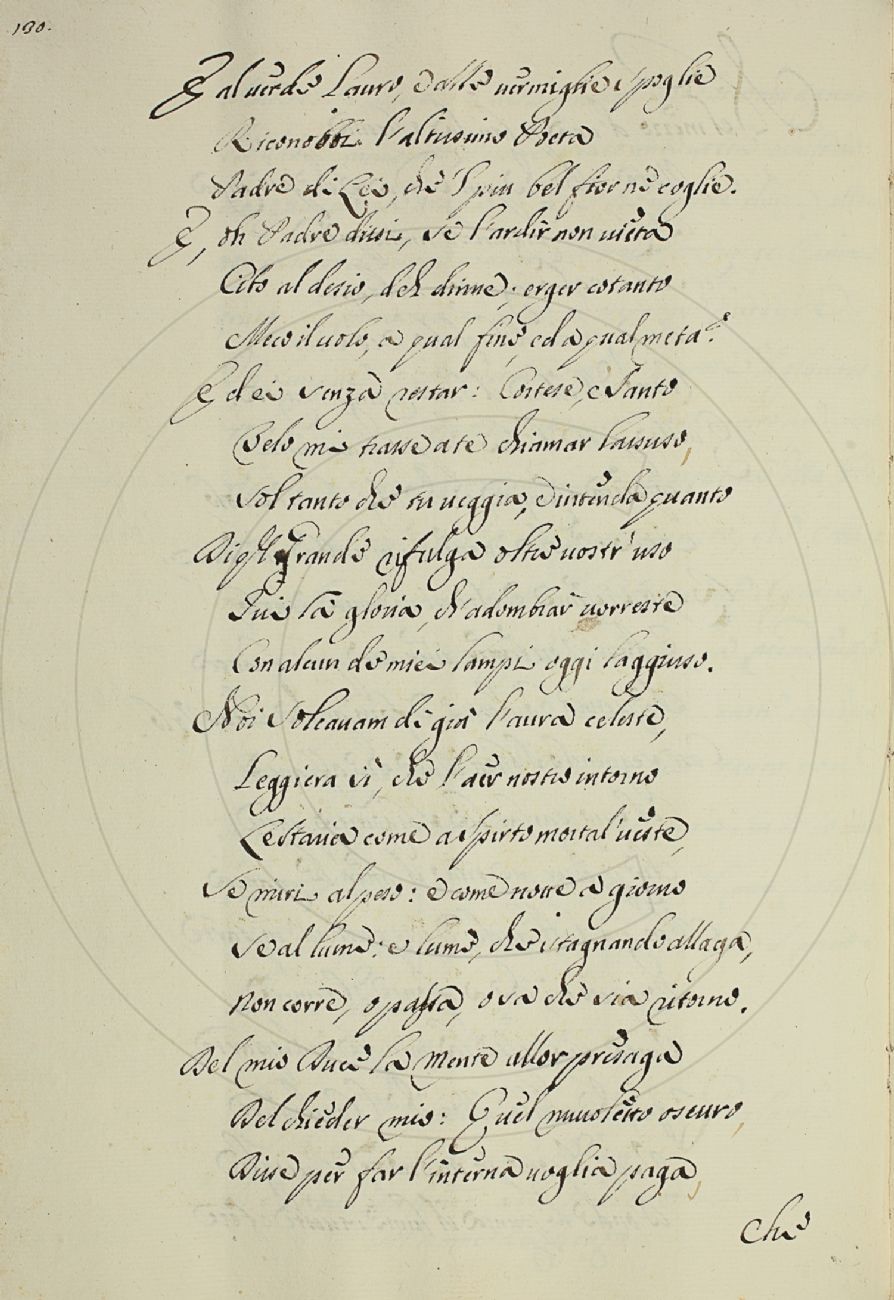 130.
E al verde Lauro, e alle vermiglie spoglie
Riconobbi l'altissimo Poeta
Padre di Lei, che 'l piu bel fior ne coglie.
E, oh Padre dissi, se l'ardir non vieta
Cielo al desio, deh dime; erger cotanto
Meco il volo, a qual fine, ed a qual meta?
Ed ei senza restar: Cortese, e Santo
Zelo mi trasse a te chiamar lassuso,
Sol tanto che tu veggia, e intenda quanto
Più grande rifulga oltre vostr'uso
Qui la gloria, ch'adombrar vorreste
Con alcun de miei lampi oggi laggiuso.
Noi solcavam di già l'aura celeste,
Leggiera sì, che l'aer nostro intorno
Le staria come a spirto mortal veste,
Se miri al peso: e come notte a giorno
Se al lume; e lume, che stagnando allaga,
Non corre, o passa, o sa che sia ritorno.
Del mio Duce la mente allor presaga
Del chieder mio: Quel nuvoletto oscuro,
Disse per far l'interna voglia paga,
Che